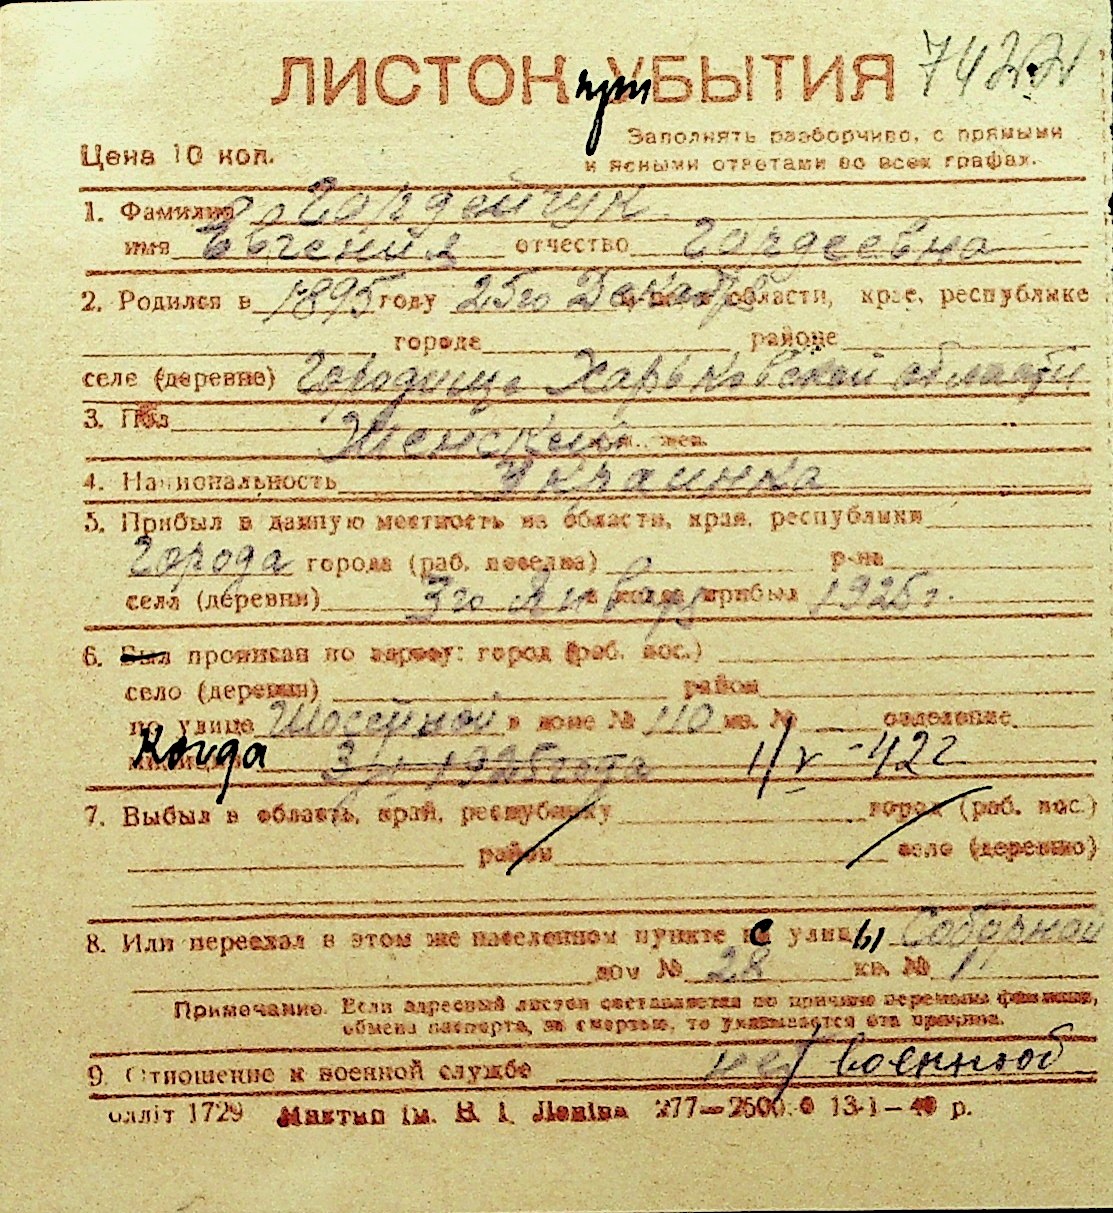 ЛИСТОК при УБЫТИЯ 7422
Заполнять разборчиво, с прямыми
и ясными ответами во всех графах.
Цена 10 коп.
1. Фамилия Гордейчук
имя Евгения отчество Гордеевна
2. Родился в 1895 году 25го Декабря области, крае, республике
городе районе
селе (деревне) Городище Харьковской области
3. Пол Женский м., жен.
4. Национальность Украинка
5. Прибыл в данную местность из области, края, республики
Города города (раб. поселка) р-на
села (деревни) 3го Январ и когда прибыл 1925г.
6. Был прописан по адресу: город (раб. пос.)
село (деревня) район
по улице Шосейной в доме № 110 кв. № отделение
Когда 3/I 1925 года 1/V-42г
7. Выбыл в область, край, республику город (раб. пос.)
район село (деревню)
8. Или переехал в этом же населенном пункте с улицы Соборной
дом № 28 кв. № 1
Примечание. Если адресный листок составляется по причине перемены фамилии,
обмена паспорта, за смертью, то указывается эта причина.
9. Отношение к военной службе не военнооб
блліт 1729 Міктип ім. В. І. Леніна 277—2500. 13-I—40 р.